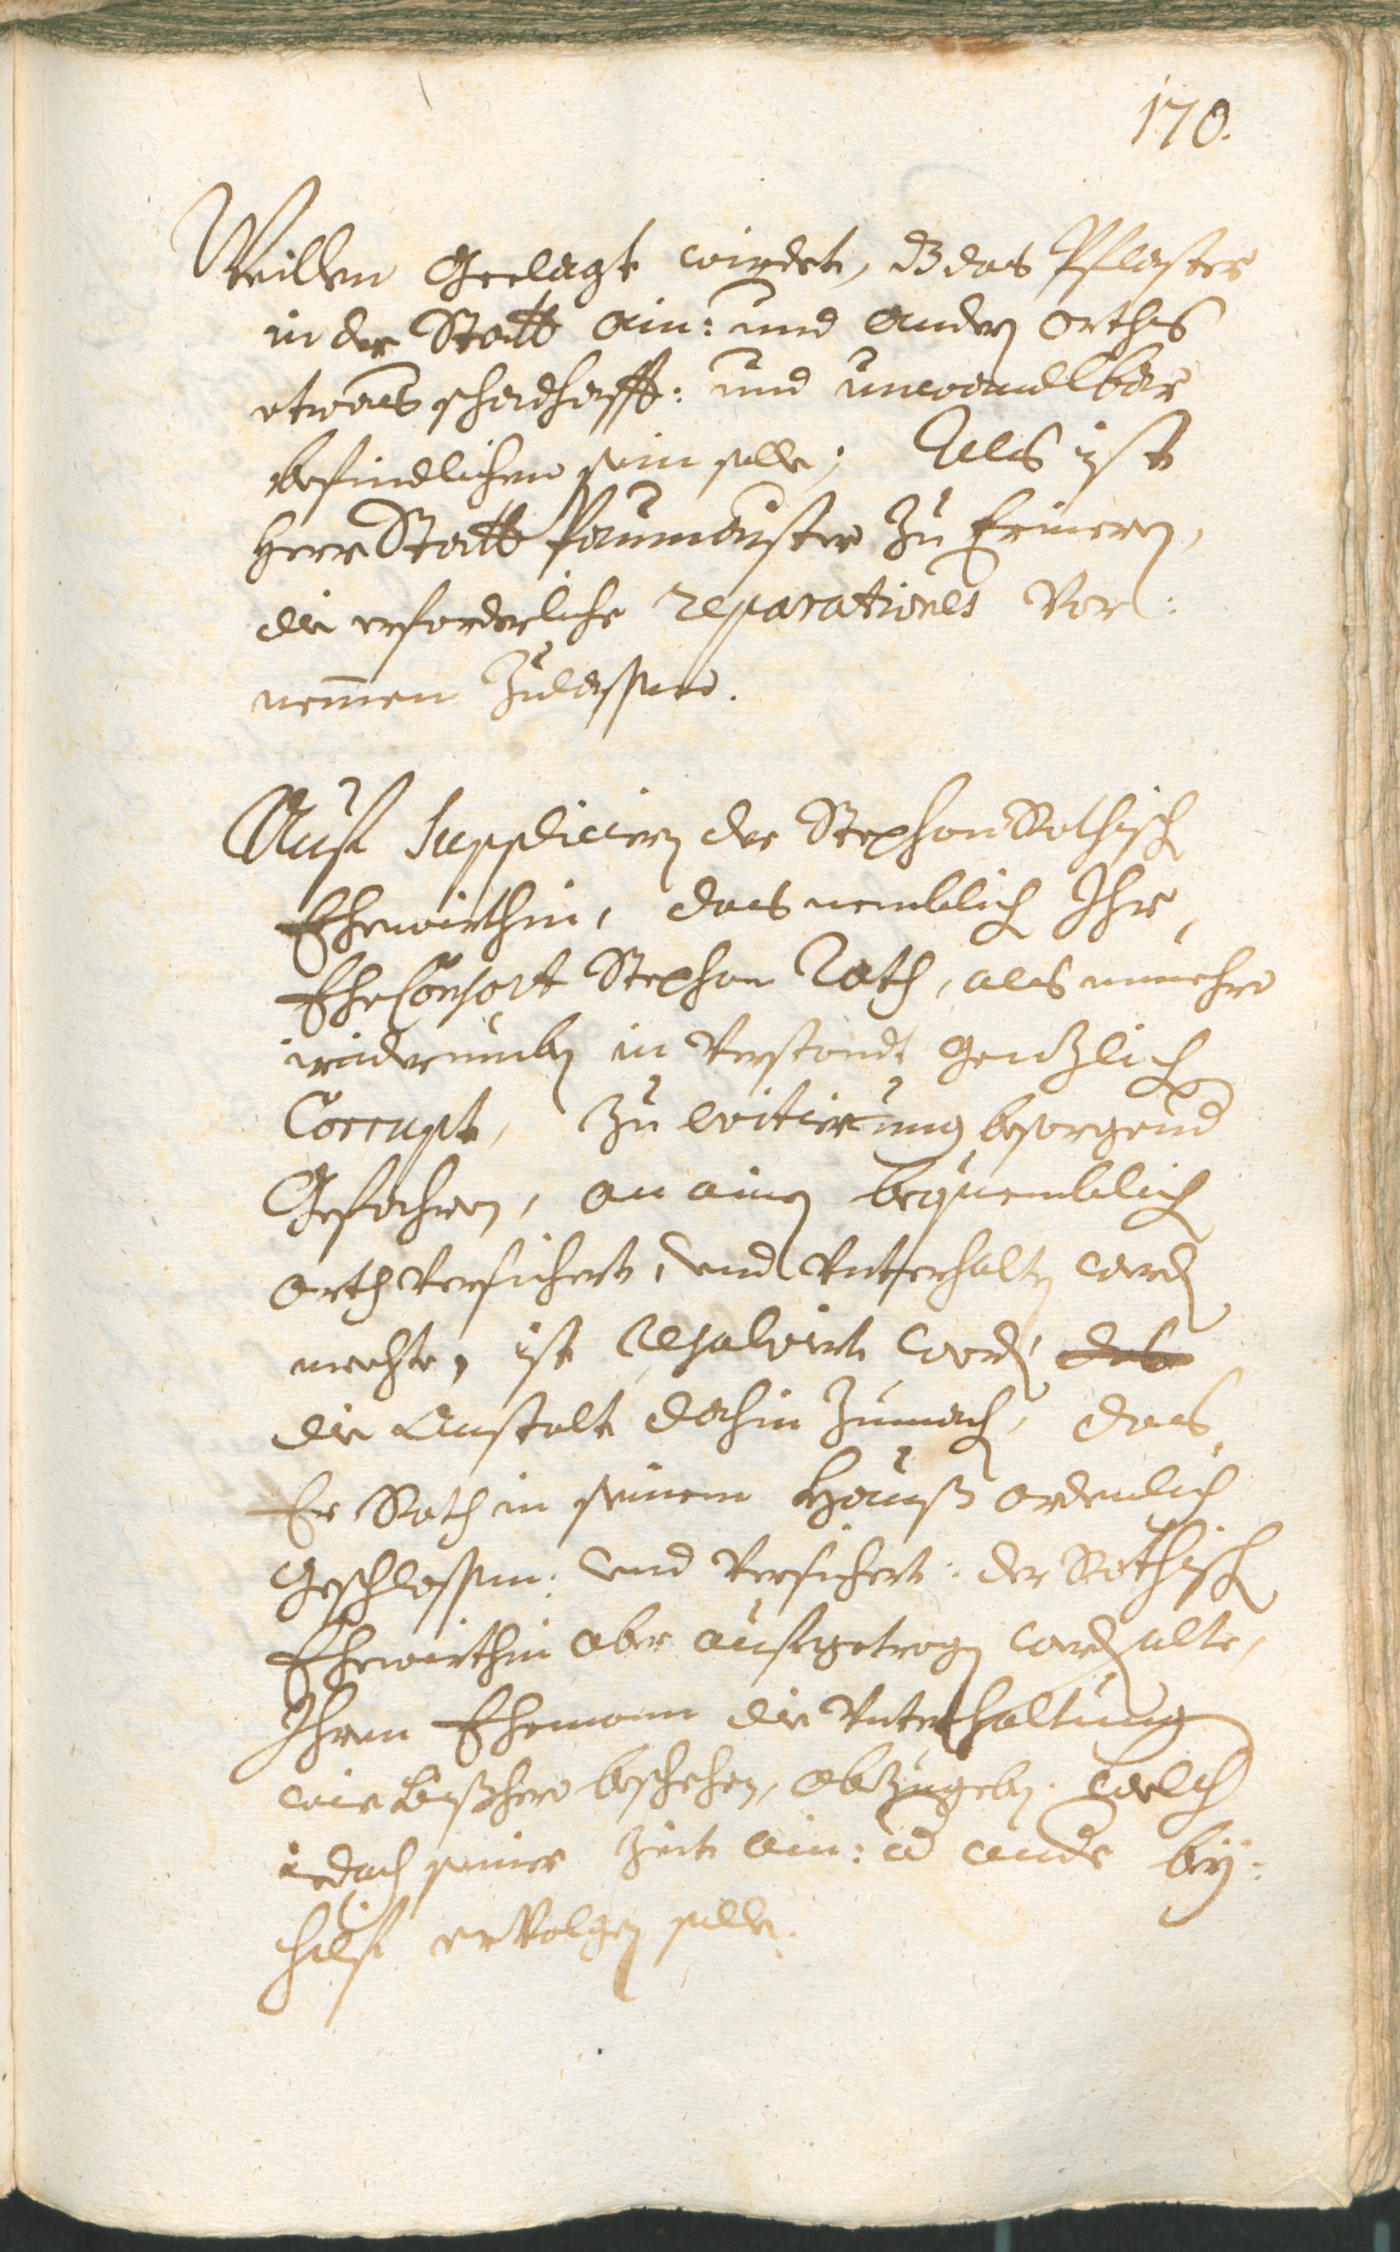 170.
Weillen Geclagt wirdet, dz das Pflaster
in der Statt ain: und andern orthes
etwas schadhafft: und unwandlbar
befindlichen sein solle; Als ist
Herr Statt Paumaister zu Erinern,
die erforderliche reparationes Vor:
nemmen zulassen.
Auf Supplicirn der Stephan Rothisch
Ehewirthin, das nemblich Ihr,
EheConsort Stephan Roth, als nunmehro
widerumben in Verstandt gentzlich
Corrupt, zu evitierung besorgend
Gefahren, an ainen bequemblich
orth versichert, und Unterhalten werden
mechte, ist resolvirt worden
die Anstalt dahin zumachen, das
Er Roth in seinem Hauß ordenlich
geschlossen: und versichert: der Rothisch
Ehewirthin aber aufgetragen werden solte,
Ihrem Ehemann die Unterhaltung
wie bißhero beschehen, abzugeben. welch
iedoch seiner Zeit ain: und ander bey:
hilf ervolgen solle.